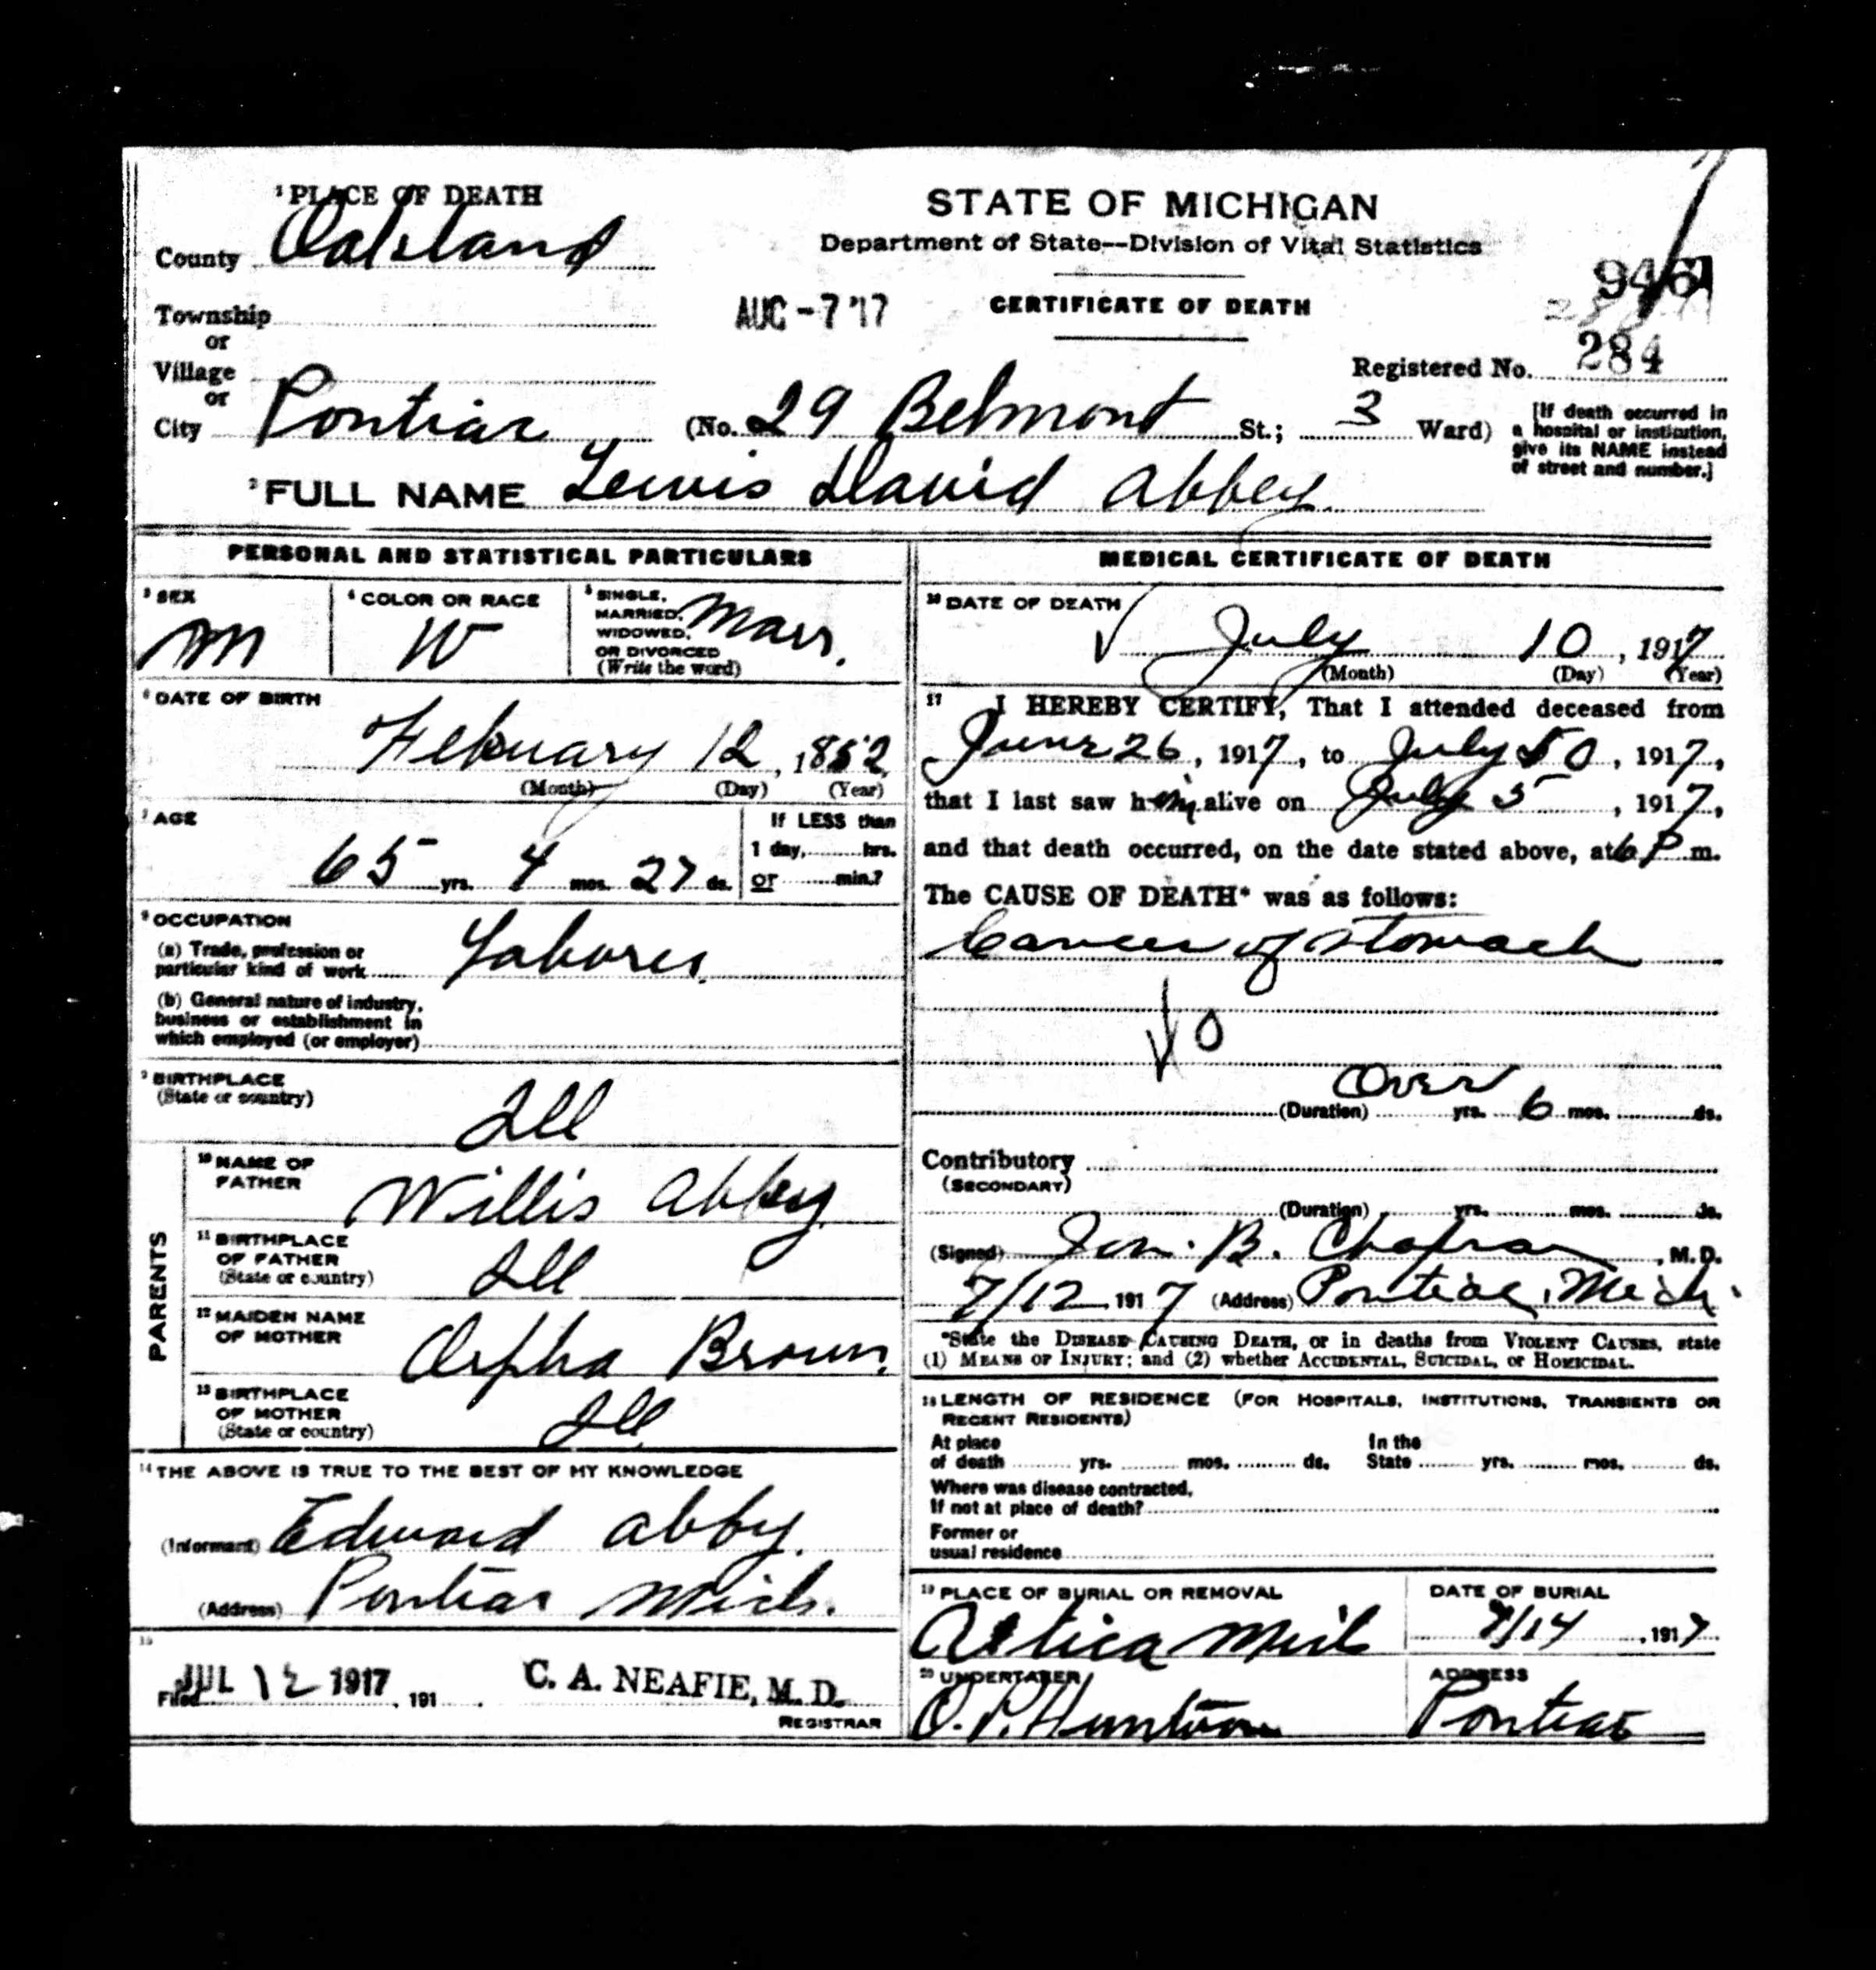 ¹ PLACE OF DEATH
County Oakland
Township
or
Village
or
City Pontiac (No. 29 Belmont St.; 3 Ward)
STATE OF MICHIGAN
Department of State—Division of Vital Statistics
AUG -7 '17
CERTIFICATE OF DEATH
Registered No. 284
[If death occurred in
a hospital or institution,
give its NAME instead
of street and number.]
² FULL NAME Lewis David Abbey
PERSONAL AND STATISTICAL PARTICULARS
³ SEX
M
⁴ COLOR OR RACE
W
⁵ SINGLE,
MARRIED,
WIDOWED,
OR DIVORCED
(Write the word)
Marr.
⁶ DATE OF BIRTH
February 12, 1852
(Month) (Day) (Year)
⁷ AGE
65 yrs. 4 mos. 27 ds.
If LESS than
1 day, hrs.
or min.?
⁸ OCCUPATION
(a) Trade, profession or
particular kind of work Laborer
(b) General nature of industry,
business or establishment in
which employed (or employer)
⁹ BIRTHPLACE
(State or country)
Ill
PARENTS
¹⁰ NAME OF
FATHER
Willis Abbey
¹¹ BIRTHPLACE
OF FATHER
(State or country)
Ill
¹² MAIDEN NAME
OF MOTHER
Orpha Brown.
¹³ BIRTHPLACE
OF MOTHER
(State or country)
Ill
¹⁴ THE ABOVE IS TRUE TO THE BEST OF MY KNOWLEDGE
(Informant) Edward Abby.
(Address) Pontiac Mich.
¹⁵
Filed JUL 12 1917, 191
C. A. NEAFIE, M. D.
REGISTRAR
MEDICAL CERTIFICATE OF DEATH
¹⁶ DATE OF DEATH
July 10, 1917
(Month) (Day) (Year)
¹⁷ I HEREBY CERTIFY, That I attended deceased from
June 26, 1917, to July 0, 1917,
that I last saw him alive on July 5, 1917,
and that death occurred, on the date stated above, at 6 P m.
The CAUSE OF DEATH* was as follows:
Cancer of Stomach
0
Over
(Duration) yrs. 6 mos. ds.
Contributory
(SECONDARY)
(Duration) yrs. mos. ds.
(Signed) B. Chapman, M. D.
7/12, 1917 (Address) Pontiac, Mich.
*State the DISEASE CAUSING DEATH, or in deaths from VIOLENT CAUSES, state
(1) MEANS OF INJURY; and (2) whether ACCIDENTAL, SUICIDAL, or HOMICIDAL.
¹⁸ LENGTH OF RESIDENCE (FOR HOSPITALS, INSTITUTIONS, TRANSIENTS OR
RECENT RESIDENTS)
At place
of death yrs. mos. ds.
In the
State yrs. mos. ds.
Where was disease contracted,
If not at place of death?
Former or
usual residence
¹⁹ PLACE OF BURIAL OR REMOVAL
Attica Mich
DATE OF BURIAL
7/14, 1917
²⁰ UNDERTAKER
O. P. Huntoon
ADDRESS
Pontiac